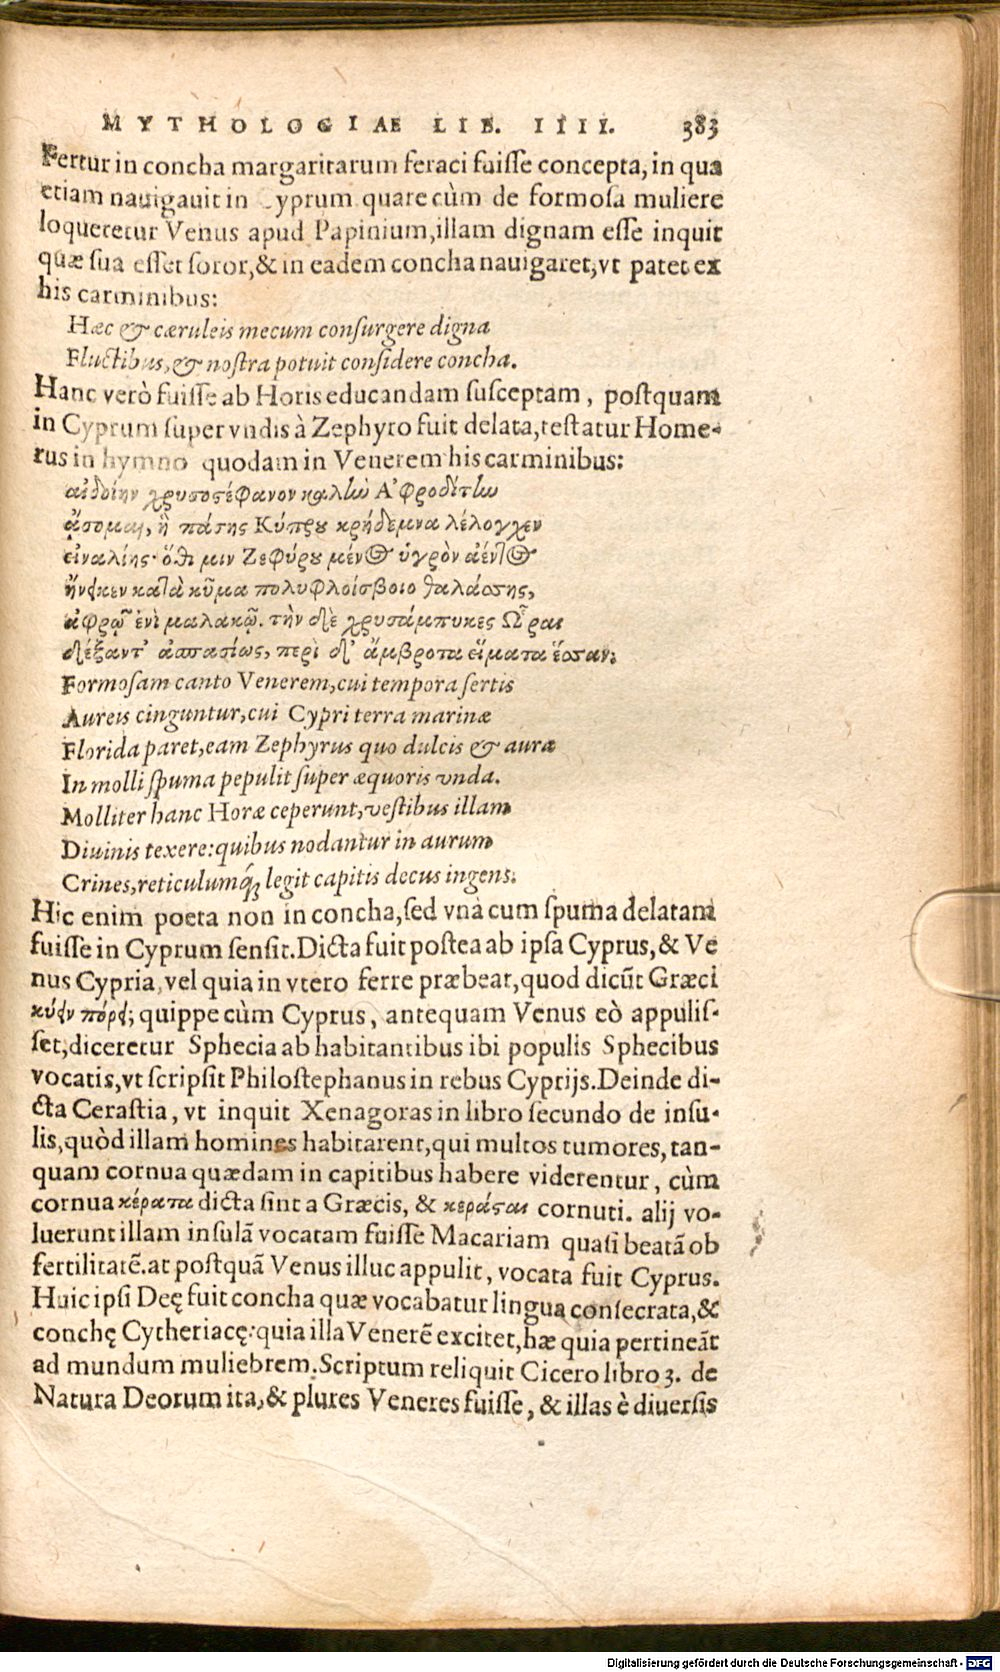 MYTHOLOGIAE LIB. IIII. 383
Fertur in concha margaritarum feraci fuisse concepta, in qua
etiam nauigauit in Cyprum quare cùm de formosa muliere
loqueretur Venus apud Papinium, illam dignam esse inquit
quæ sua esset soror, & in eadem concha nauigaret, vt patet ex
his carminibus:
Hæc & cæruleis mecum consurgere digna
Fluctibus, & nostra potuit considere concha.
Hanc verò fuisse ab Horis educandam susceptam, postquam
in Cyprum super vndis à Zephyro fuit delata, testatur Home-
rus in hymno quodam in Venerem his carminibus:
αἰδοίην χρυσοστέφανον καλὴν Ἀφροδίτην
ᾄσομαι, ἣ πάσης Κύπρου κρήδεμνα λέλογχεν
εἰναλίης· ὅθι μιν Ζεφύρου μένος ὑγρὸν ἀέντος
ἤνεικεν κατὰ κῦμα πολυφλοίσβοιο θαλάσσης,
ἀφρῷ ἐνὶ μαλακῷ. τὴν δὲ χρυσάμπυκες Ὧραι
δέξαντ' ἀσπασίως, περὶ δ' ἄμβροτα εἵματα ἕσσαν;
Formosam canto Venerem, cui tempora sertis
Aureis cinguntur, cui Cypri terra marinæ
Florida paret, eam Zephyrus quo dulcis & aura
In molli spuma pepulit super æquoris vnda.
Molliter hanc Horæ ceperunt, vestibus illam
Diuinis texere: quibus nodantur in aurum
Crines, reticulumq́; legit capitis decus ingens.
Hic enim poeta non in concha, sed vnà cum spuma delatam
fuisse in Cyprum sensit. Dicta fuit postea ab ipsa Cyprus, & Ve
nus Cypria, vel quia in vtero ferre præbeat, quod dicūt Græci
κύειν πόρει; quippe cùm Cyprus, antequam Venus eò appulis-
set, diceretur Sphecia ab habitantibus ibi populis Sphecibus
vocatis, vt scripsit Philostephanus in rebus Cyprijs. Deinde di-
cta Cerastia, vt inquit Xenagoras in libro secundo de insu-
lis, quòd illam homines habitarent, qui multos tumores, tan-
quam cornua quædam in capitibus habere viderentur, cùm
cornua κέρατα dicta sint a Græcis, & κεράσαι cornuti. alij vo-
luerunt illam insulā vocatam fuisse Macariam quasi beatā ob
fertilitatē. at postquā Venus illuc appulit, vocata fuit Cyprus.
Huic ipsi Deę fuit concha quæ vocabatur lingua consecrata, &
conchę Cytheriacę: quia illa Venerē excitet, hæ quia pertineāt
ad mundum muliebrem. Scriptum reliquit Cicero libro 3. de
Natura Deorum ita, & plures Veneres fuisse, & illas è diuersis
Digitalisierung gefördert durch die Deutsche Forschungsgemeinschaft - DFG